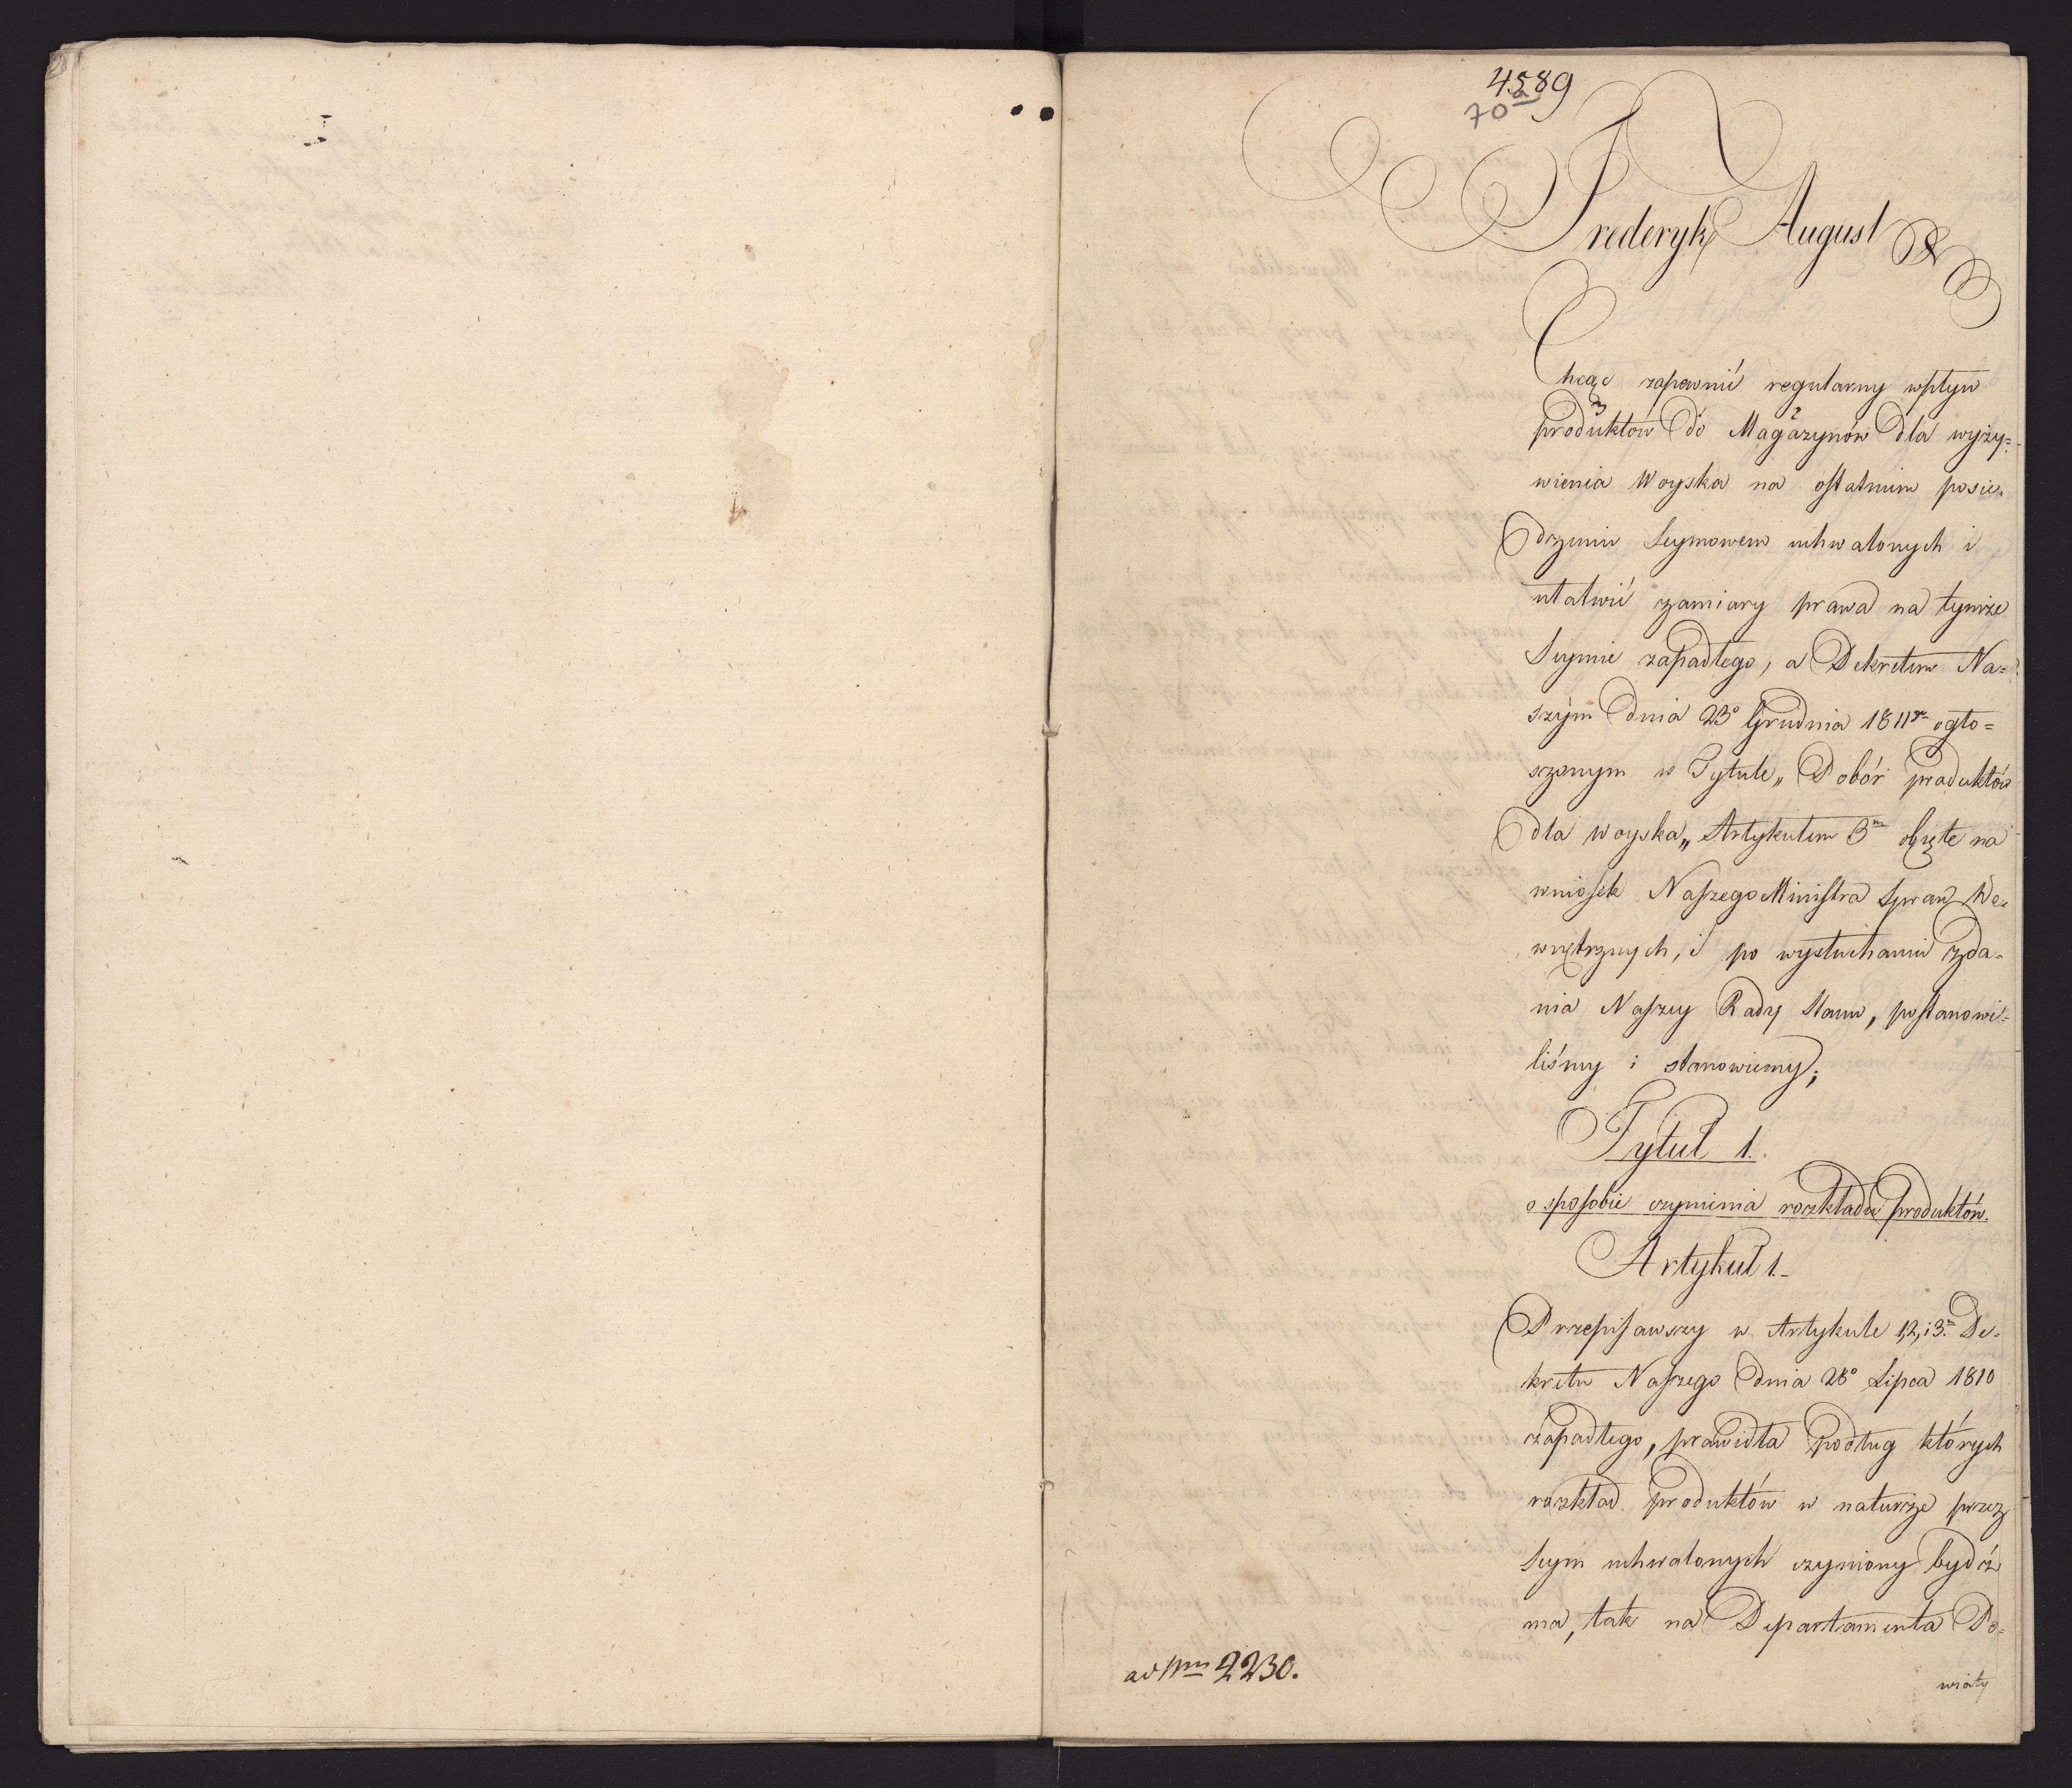 4589
70a
Frederyk August &
Chcąc zapewnić regularny wpływ
produktów do Magazynów dla wyży=
wienia Woyska na ostatnim posie=
dzeniu Seymowem uchwalonych i
ułatwić zamiary prawa na tymże
Seymie zapadłego, a Dekretem Na=
szym dnia 23o Grudnia 1811 ogło=
szonym w Tytule „Pobór produktów
dla woyska„ Artykułem 3m obięte na
wniosek Naszego Ministra Spraw We=
wnętrznych, i po wysłuchaniu zda=
nia Naszey Rady Stanu, postanowi=
liśmy i stanowiemy;
Tytuł 1.
o sposobie czynienia rozkładu produktów.
Artykuł 1.
Przepisawszy w Artykule 1,2, i 3m De=
kretu Naszego dnia 28o Lipca 1810
zapadłego, prawidła podług których
rozkład produktów w naturze przez
Seym uchwalonych czyniony bydź
ma, tak na Departamenta Po=
wiaty
ad Num 2230.